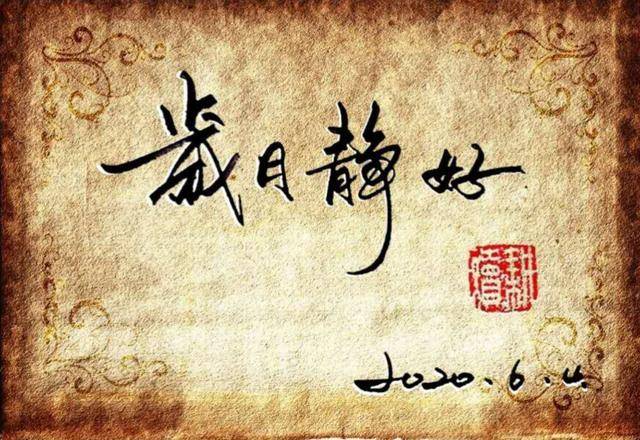 歲月靜好
2020.6.4.